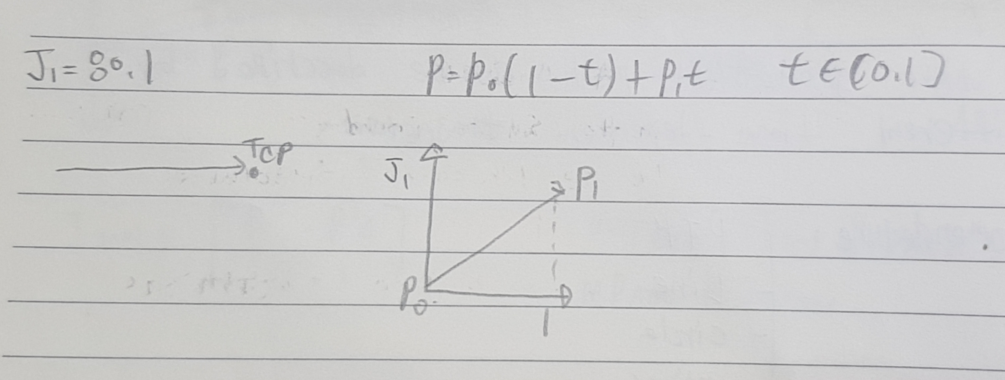 J₁ = 80.1 P = P₀(1-t) + P₁t t ∈ [0.1]
TCP
J₁ P₁
P₀
1